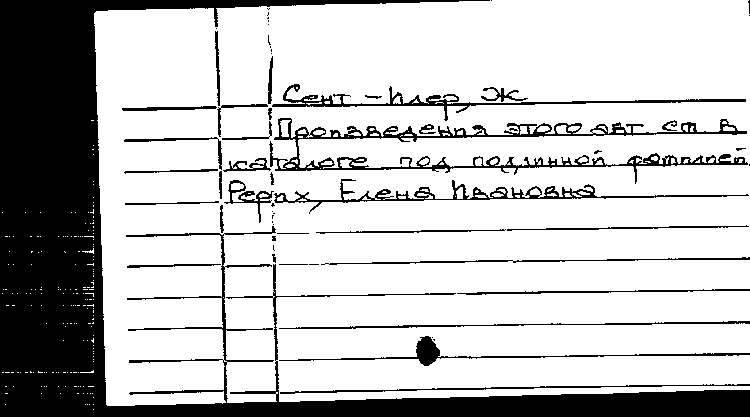 Сент-Илер, Ж
Произведения этого авт см. в
каталоге под подлинной фамилией
Рерих, Елена Ивановна